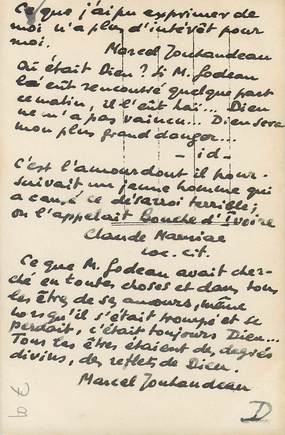 Ce que j'ai pu exprimer de
moi n'a plus d'intérêt pour
moi.
Marcel Jouhandeau
Où était Dieu ? Si M. Godeau
l'eût rencontré quelque part
ce matin, il l'eût haï... Dieu
ne m'a pas vaincu... Dieu sera
mon plus grand danger...
- id -
C'est l'amour dont il pour-
suivait un jeune homme qui
a causé ce désarroi terrible;
on l'appelait Bouche d'Ivoire
Claude Mauriac
loc. cit.
Ce que M. Godeau avait cher-
ché en toutes choses et dans tous
les êtres de ses amours, même
lorsqu'il s'était trompé et se
perdait, c'était toujours Dieu...
Tous les êtres étaient des degrés
divins, des reflets de Dieu.
Marcel Jouhandeau
D